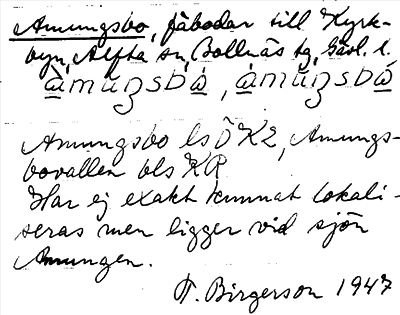 Amungsbo, fäbodar till Kyrk-
byn, Alfta sn, Bollnäs tg, Gävl. l.
àmuŋsbò, àmuŋsbò
Amungsbo ls Ö K2, Amungs-
bovallen bls KR
Har ej exakt kunnat lokali-
seras men ligger vid sjön
Amungen.
T. Birgerson 1947